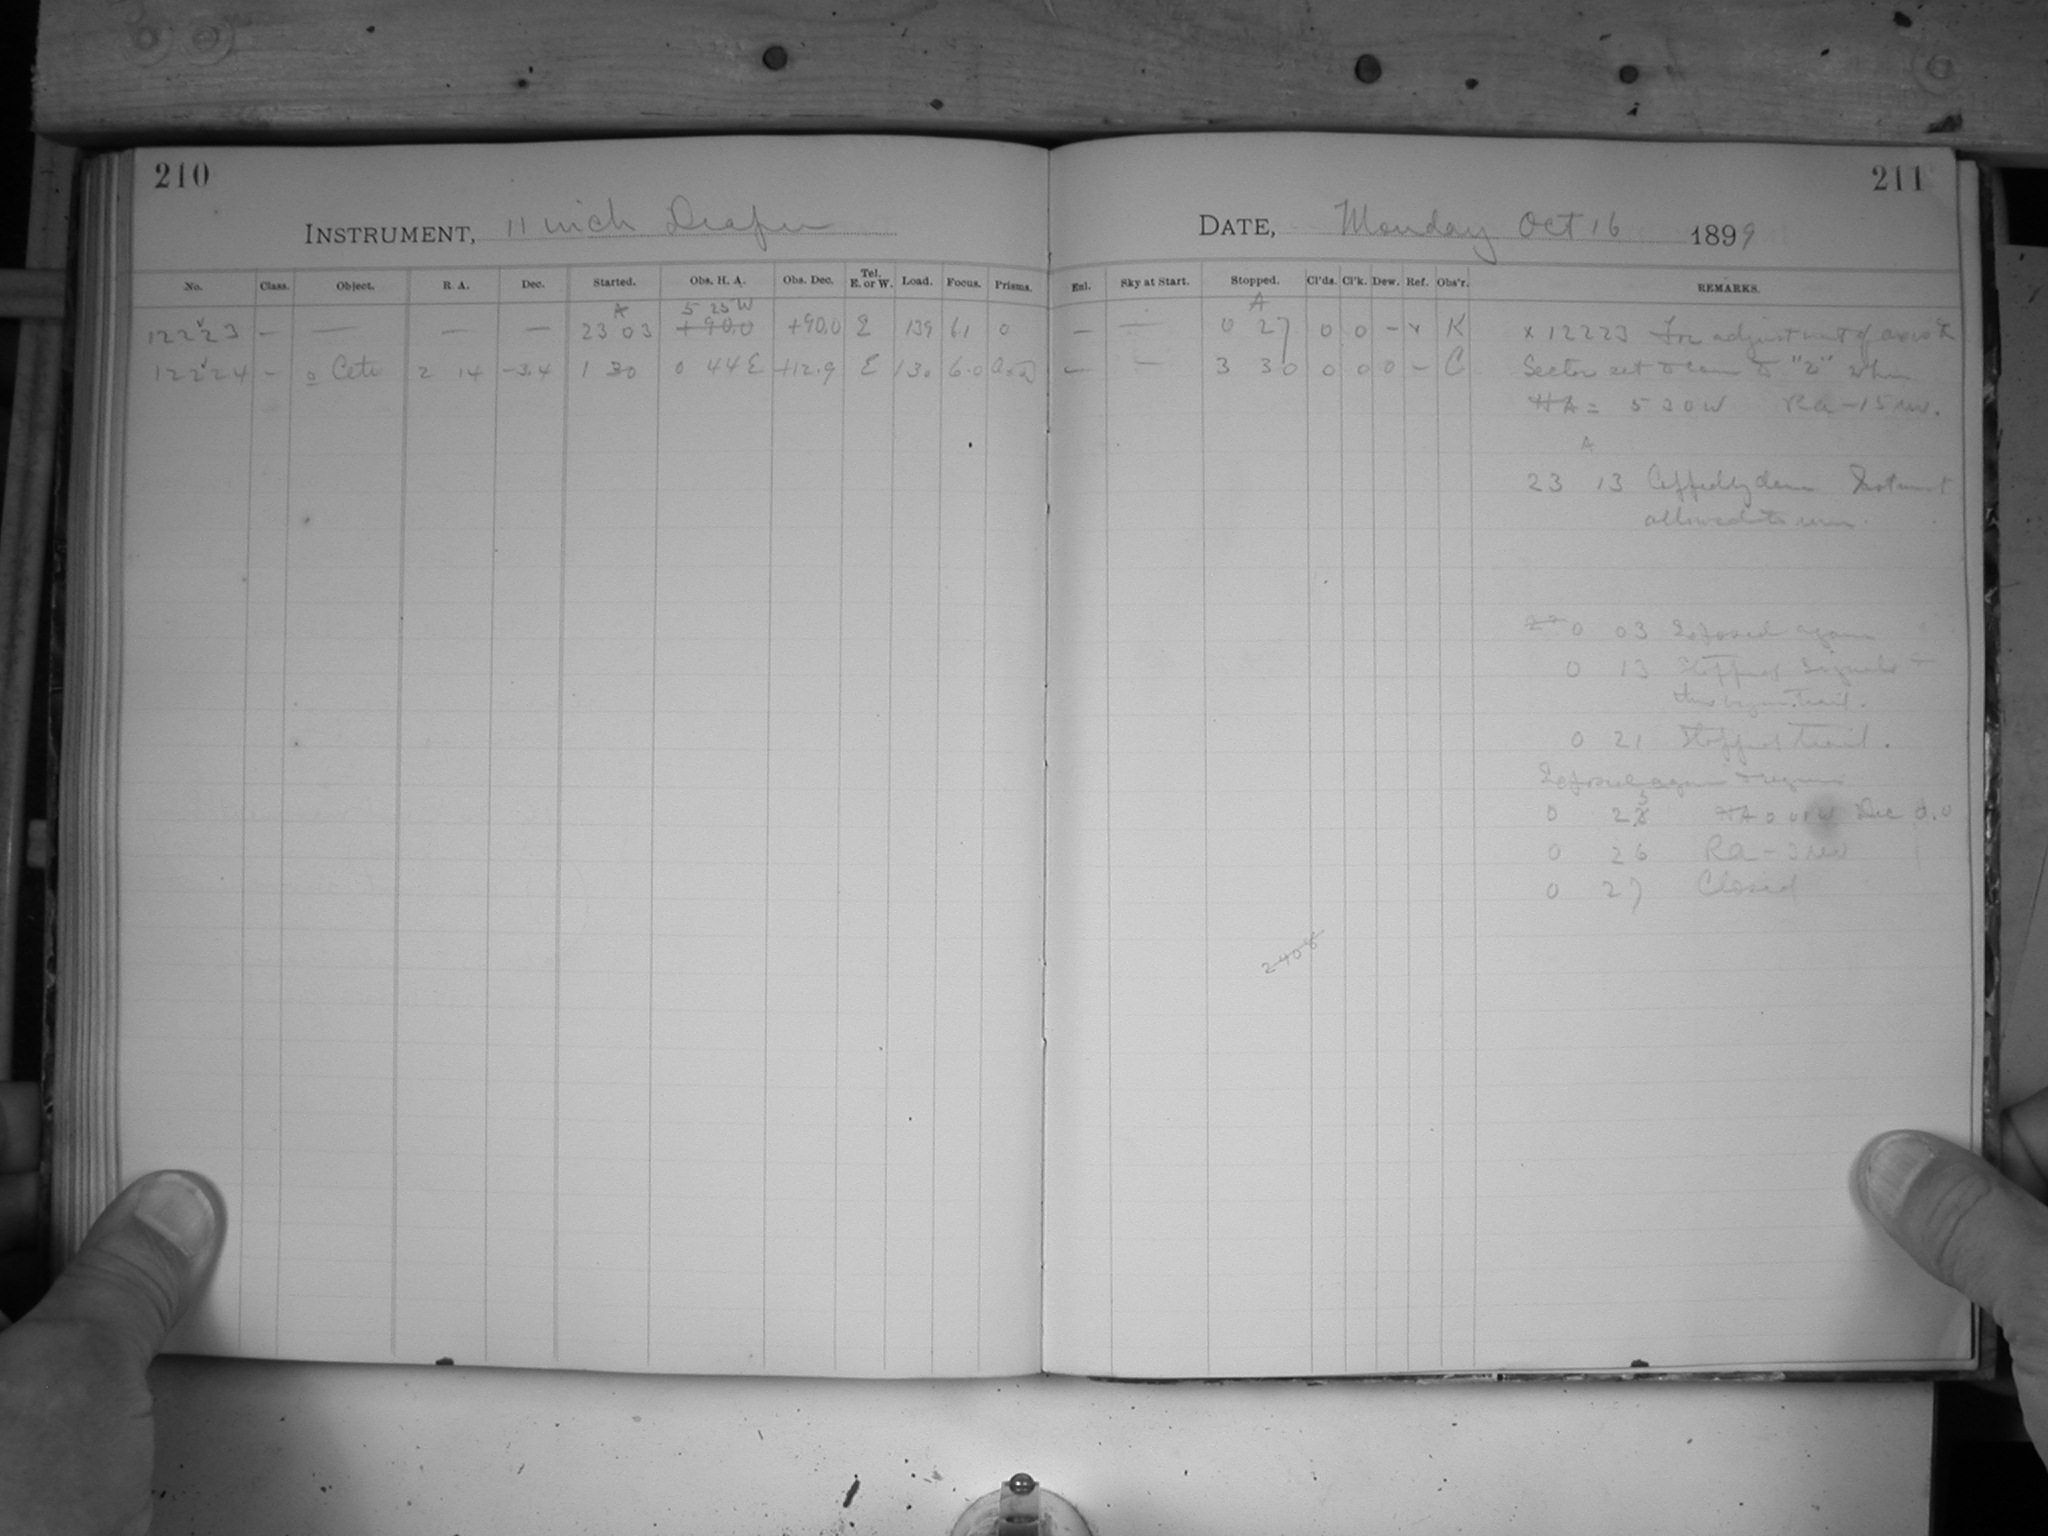 210
INSTRUMENT, 11 inch Draper
No. Class. Object. R. A. Dec. Started. Obs. H. A. Obs. Dec. Tel. E. or W. Load. Focus. Prisms.
A 5 25 W
12223 — — — — 23 03 +90.0 +90.0 E 139 6.1 0
12224 - o Ceti 2 14 -3.4 1 30 0 44 E +12.9 E 130 6.0
211
DATE, Monday Oct 16 1899
Enl. Sky at Start. Stopped. Cl'ds. Cl'k. Dew. Ref. Obs'r. REMARKS.
A
— — 0 27 0 0 - x K x 12223 For adjustment of axis
— — 3 30 0 0 0 - C Sector set to when
HA = 5 30 W Ra - 15
A
23 13
allowed to run.
0 03 Exposed again
0 13 Stopped
trail.
0 21 Stopped trail.
Exposed again
0 23 HA 0 01 W Dec 0.0
0 26 Ra - 3
0 27 Closed